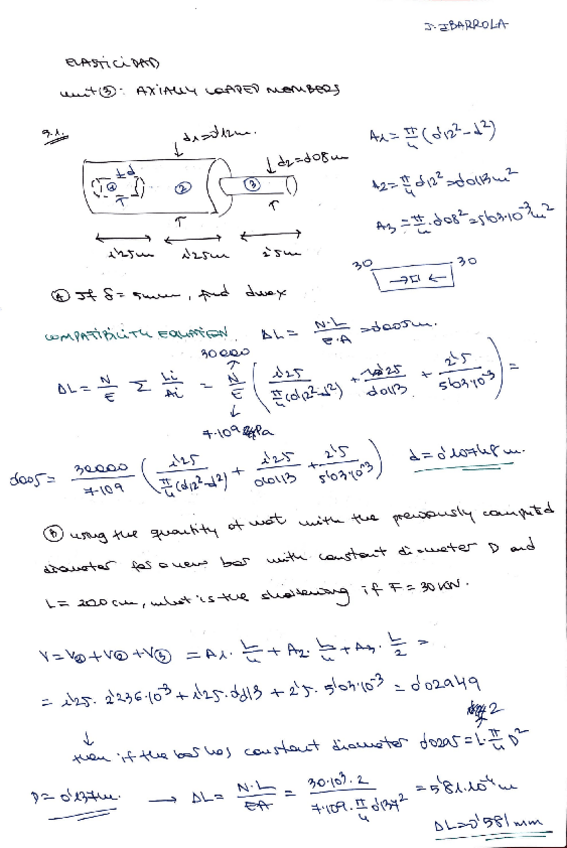 J. IBARROLA
ELASTICIDAD
unit ③: AXIALLY LOADED MEMBERS
3.1.
d1=0'12m.
d2=0'08m
① ② ③
d
1'25m 1'25m 2'5m
A1=π/4(0'12²-d²)
A2=π/4 0'12²=0'0113m²
A3=π/4·0'08²=5'03·10⁻³m²
30 30
Ⓐ If δ= 5mm, find dmax
COMPATIBILITY EQUATION. ΔL= N·L/E·A =0'005m.
30000
ΔL= N/E Σ Li/Ai = N/E (1'25/π/4(0'12²-d²) + 1'25/0'0113 + 2'5/5'03·10⁻³) =
7·109 Pa
0'005= 30000/7·109 (1'25/π/4(0'12²-d²) + 1'25/0'0113 + 2'5/5'03·10⁻³) d=0'10748 m.
Ⓑ using the quantity of mat with the previously computed
diameter for a new bar with constant diameter D and
L= 200cm, what is the shortening if F=30KN.
V=V①+V②+V③ =A1·L/4+A2·L/4+A3·L/2=
= 1'25·2'236·10⁻³+1'25·0'0113+2'5·5'03·10⁻³=0'02949
2
then if the bar has constant diameter 0'0295=L·π/4 D²
D=0'137m. → ΔL= N·L/EA = 30·10³·2/7·109·π/4 0'137² =5'81·10⁻⁴m
ΔL=0'581mm